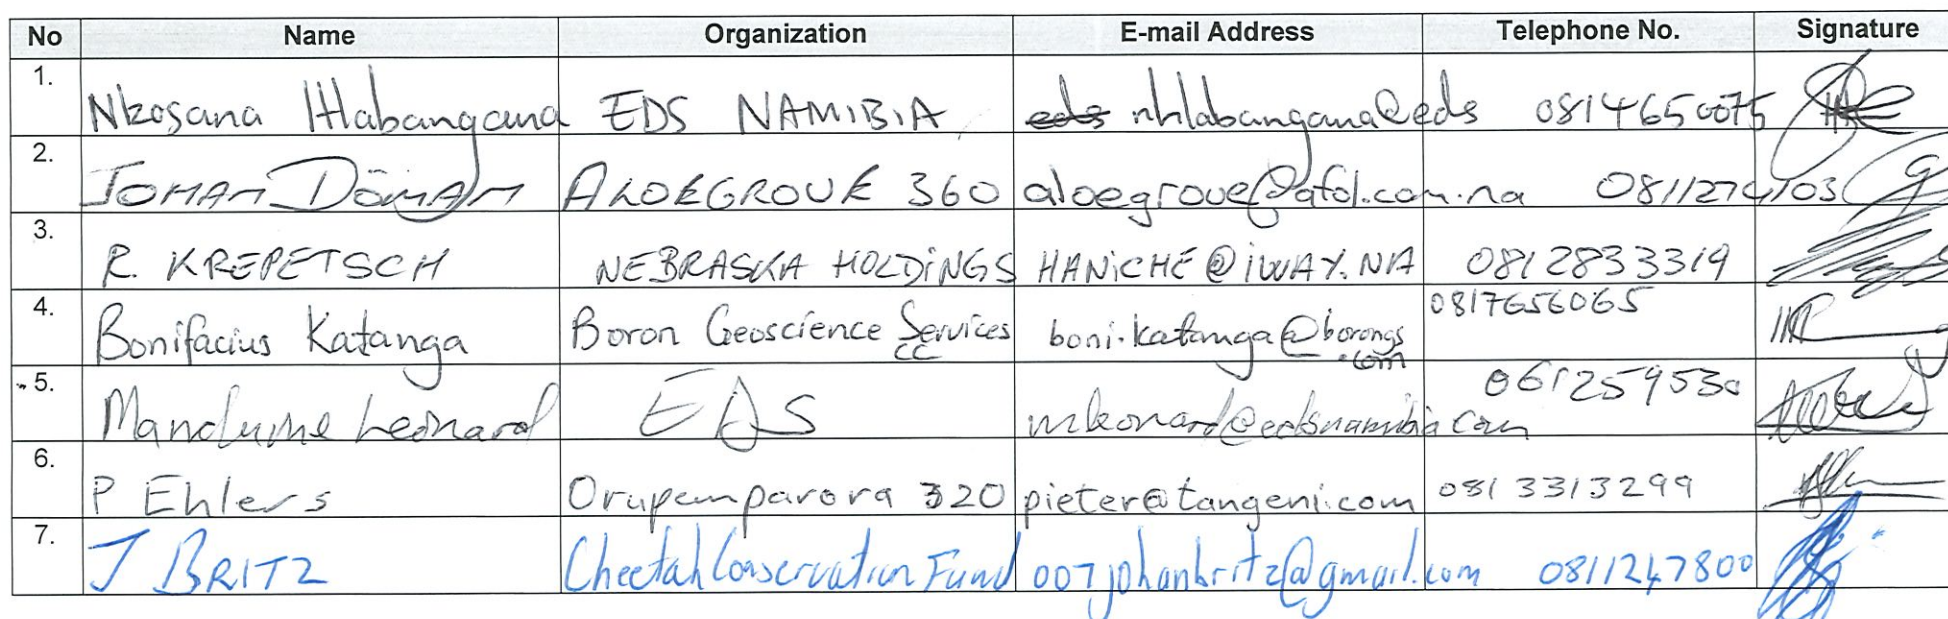 No Name Organization E-mail Address Telephone No. Signature
1. Nkosana Hlabangana EDS NAMIBIA nhlabangana@eds 0814650075
2. JOHAN DÖMAN ALOEGROVE 360 aloegrove@afol.com.na 0811274103
3. R. KREPETSCH NEBRASKA HOLDINGS HANICHE@IWAY.NA 0812833319
4. Bonifacius Katanga Boron Geoscience Services boni.katanga@borongs 0817656065
cc .com
5. Mandume Leonard EDS mleonard@edsnamibia.com 061259530
6. P Ehlers Orupemparora 320 pieter@tangeni.com 0813313299
7. J BRITZ Cheetah Conservation Fund 007johanbritz@gmail.com 0811247800